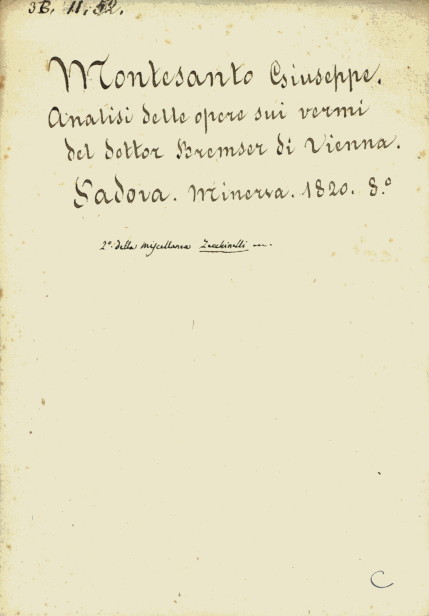 3B. 11. 52.
Montesanto Giuseppe.
Analisi delle opere sui vermi
del dottor Bremser di Vienna.
Padova. Minerva. 1820. 8.º
2º della miscellanea Zecchinelli —.
C